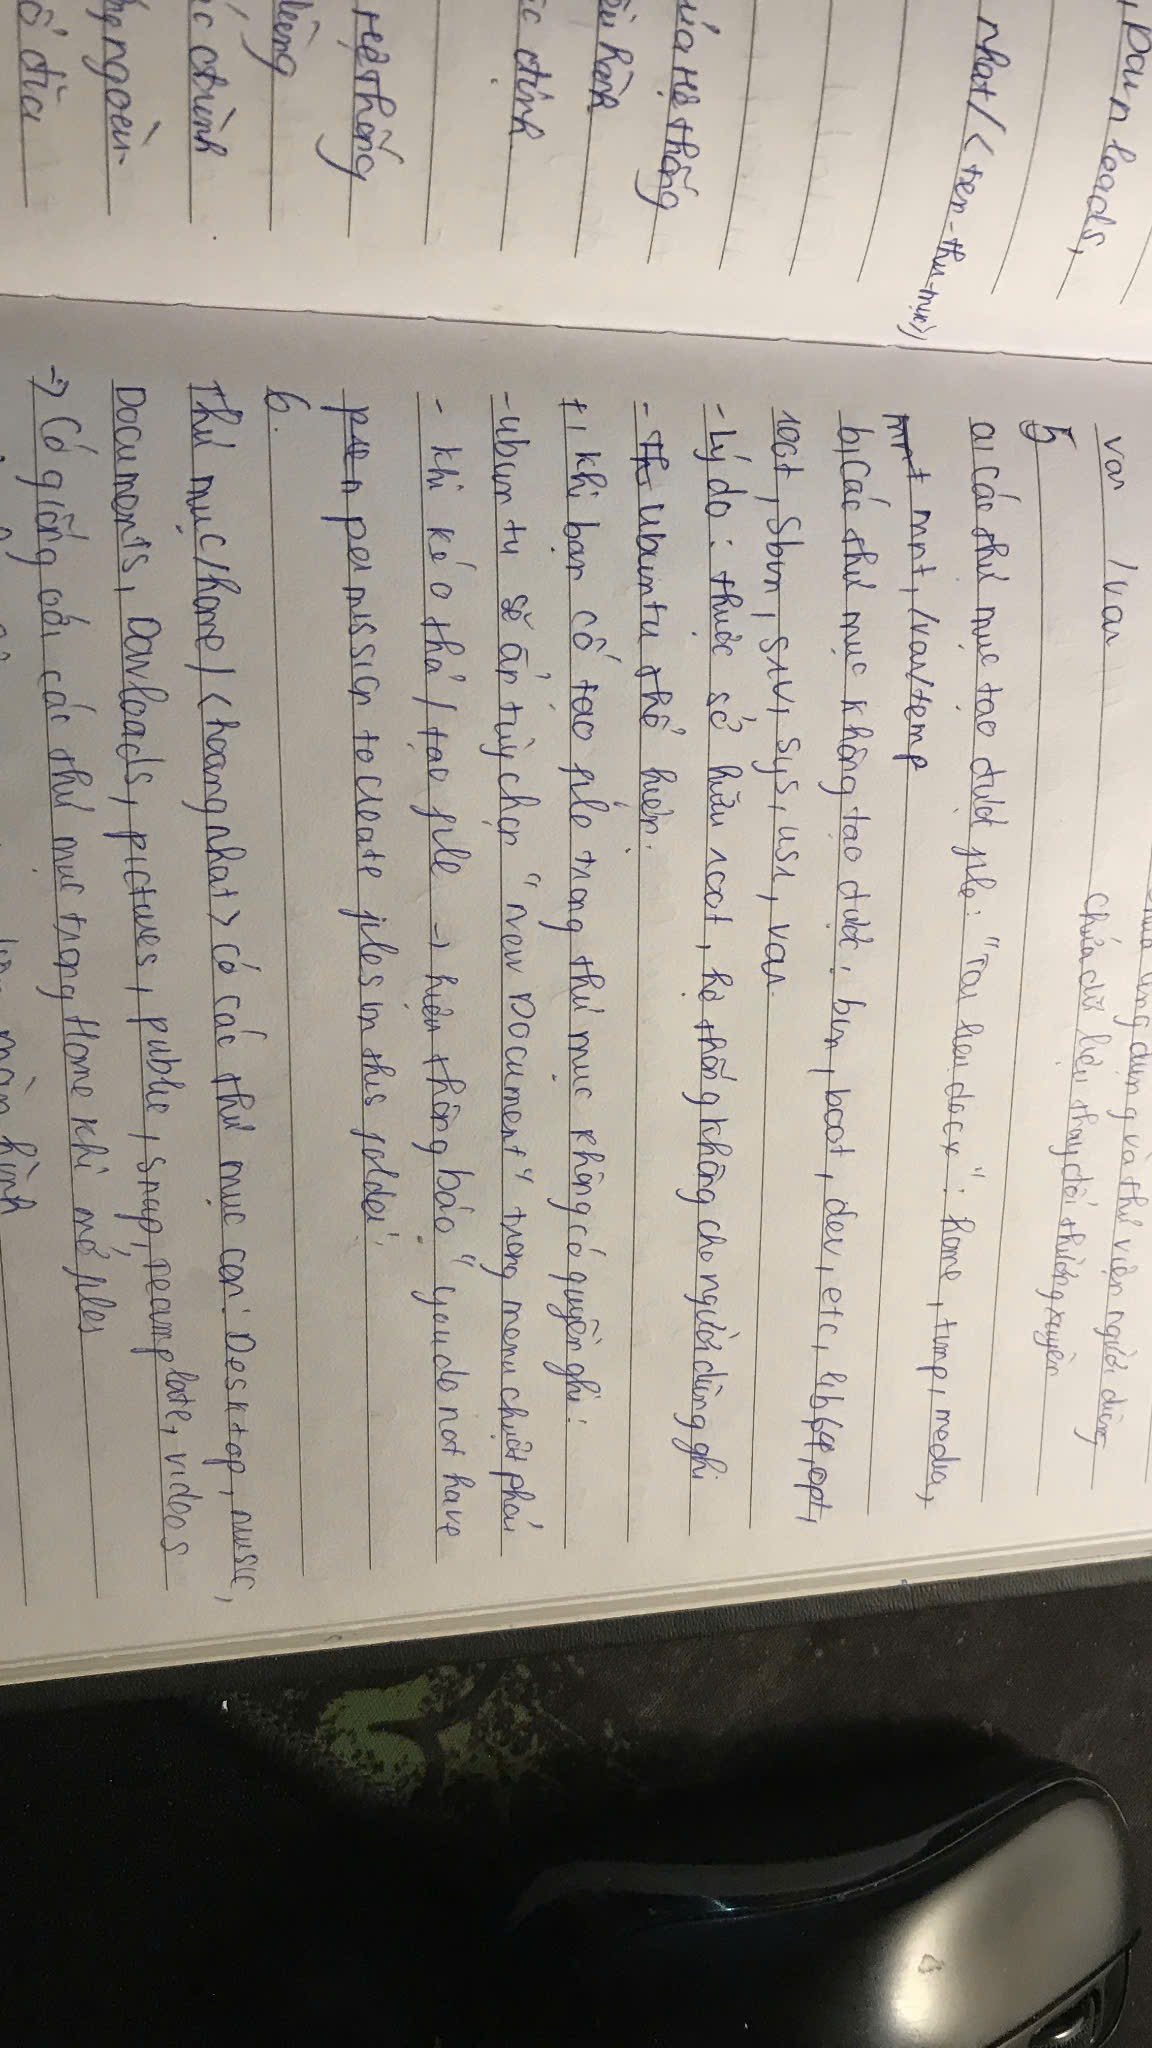 , Downloads,
nhat/<ten-thu-mục>,
của Hệ thống
ều hành
ặc định
Hệ thống
dùng
c chính
ng ngoài.
ổ đĩa
ứng dụng và thư viện người dùng
var /var chứa dữ liệu thay đổi thường xuyên
5
a, các thư mục tạo được file: "Tai lieu docx": home, tump, media,
mnt, /var/temp
b, Các thư mục không tạo được: bin, boot, dev, etc, lib64, opt,
root, Sbin, srv, sys, usr, var.
- Lý do: thuộc sở hữu root, hệ thống không cho người dùng ghi
- Th Ubuntu thể hiện:
+, khi bạn cố tạo file trong thư mục không có quyền ghi:
- Ubuntu sẽ ẩn tùy chọn "New Document" trong menu chuột phải
- khi kéo thả / tạo file -> hiện thông báo "you do not have
permission to create files in this folder.
6.
Thư mục /home/<hoangnhat> có các thư mục con: Desktop, music,
Documents, Dowloads, pictures, public, snap, teamplate, videos
-> Có giống với các thư mục trong Home khi mở files
màn hình